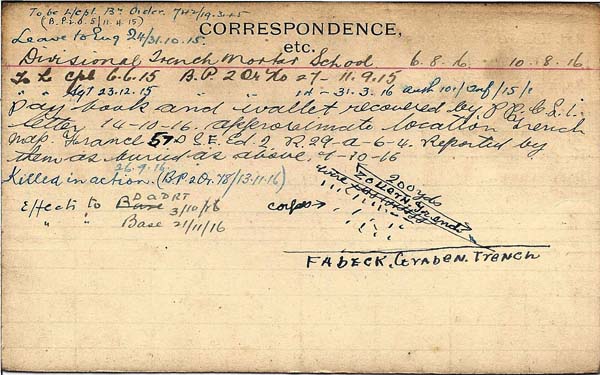 To be L/Cpl. Bn Order. 742/19.3.15
(B.P.2.O.S/11.4.15)
Leave to Eng 24/31.10.15.
CORRESPONDENCE,
etc.
Divisional Trench Mortar School 6.8.16. 10.8.16
To L Cpl 6.6.15 B.P. 2 Or No 27 - 11.9.15
" " Sgt 23.12.15 " " " 14 - 31.3.16 auth 101/Inf/15/1
pay book and wallet recovered by P.P.C.L.I.
letter 14-10-16. approximate location Trench
map. France 57D S.E. Ed. 2 R.29-a-6-4. Reported by
them as buried as above 9-10-16
26.9.16
Killed in action. (B.P.2Or.78/13.11.16)
Effects to Base DADRT 3/10/16
" " Base 21/11/16
200 yds
wire
corps
ZOLLERN. Grand
FABECK. GRABEN. TRENCH